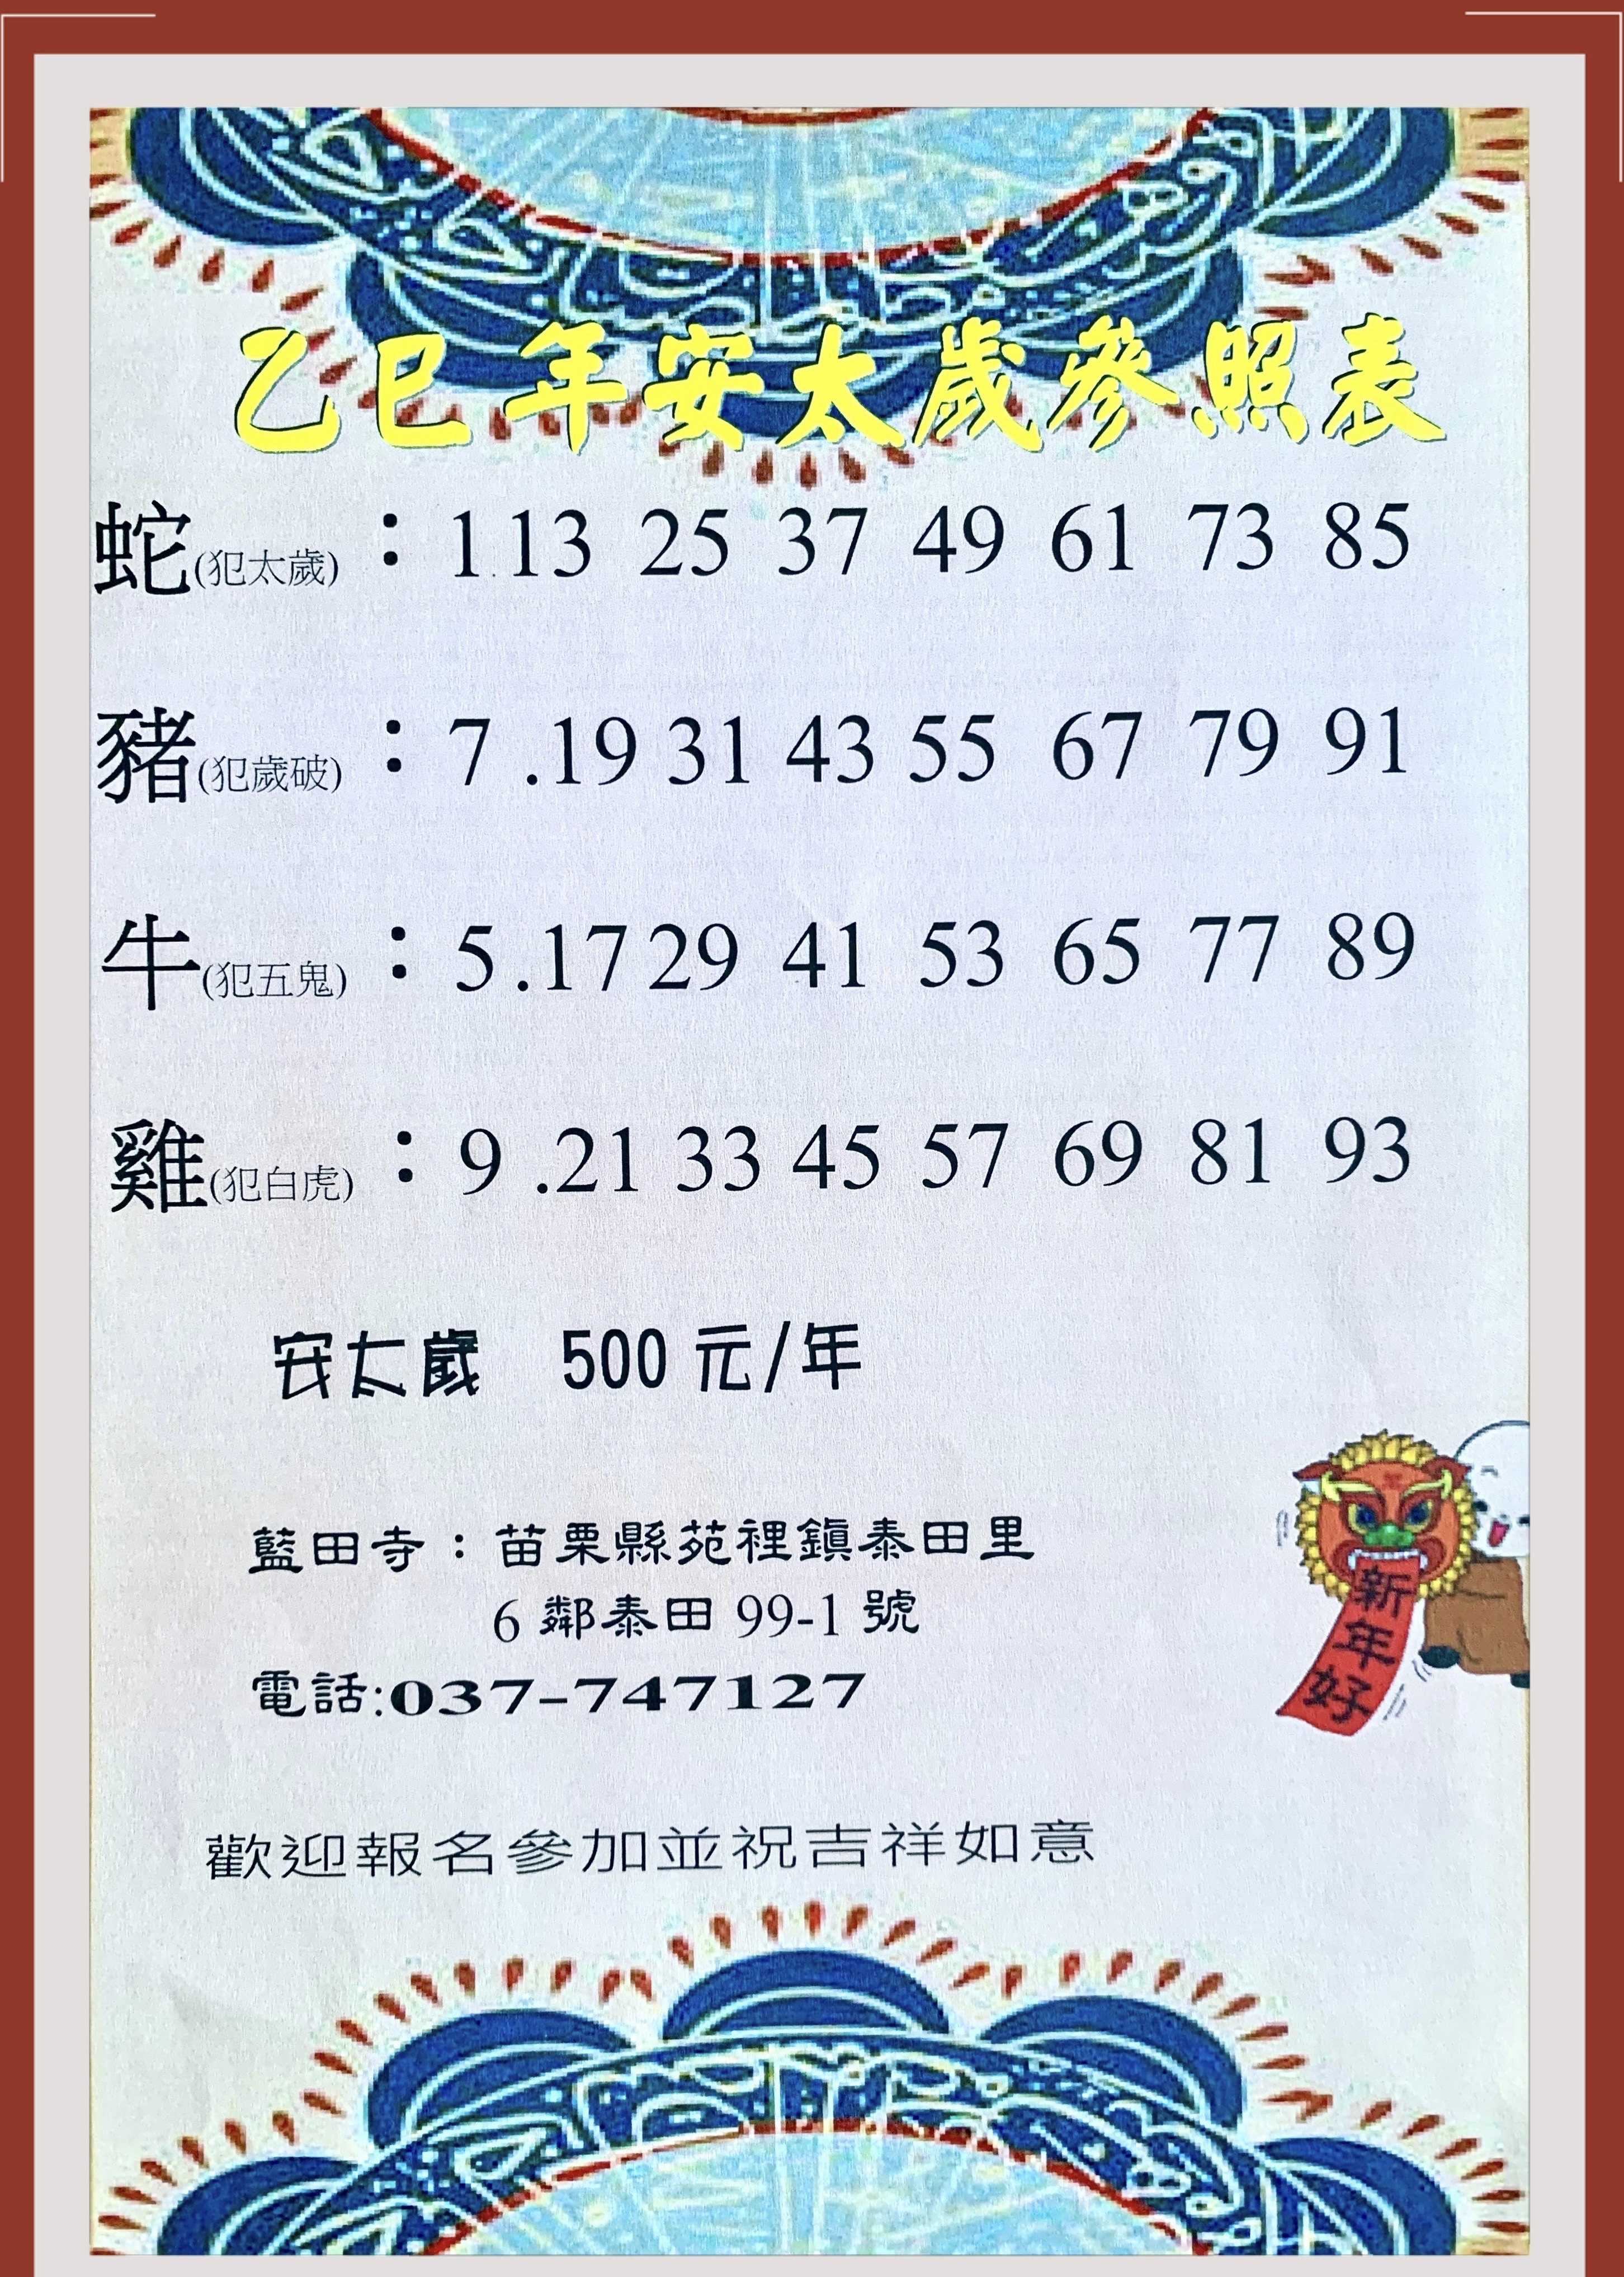 乙巳年安太歲參照表
蛇(犯太歲)：1.13 25 37 49 61 73 85
豬(犯歲破)：7 .19 31 43 55 67 79 91
牛(犯五鬼)：5 .17 29 41 53 65 77 89
雞(犯白虎)：9 .21 33 45 57 69 81 93
安太歲 500 元/年
藍田寺：苗栗縣苑裡鎮泰田里
6 鄰泰田 99-1 號
電話:037-747127
新年好
歡迎報名參加並祝吉祥如意